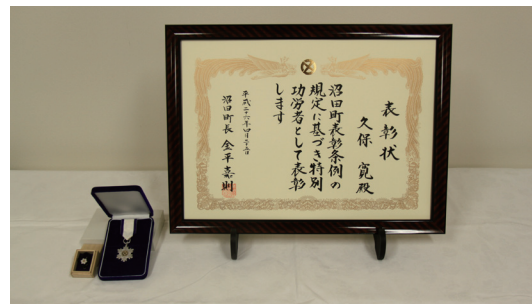 表彰状
久保 寛殿
沼田町表彰条例の
規定に基づき特別
功労者として表彰
します
平成二十六年四月二十五日
沼田町長 金平嘉則